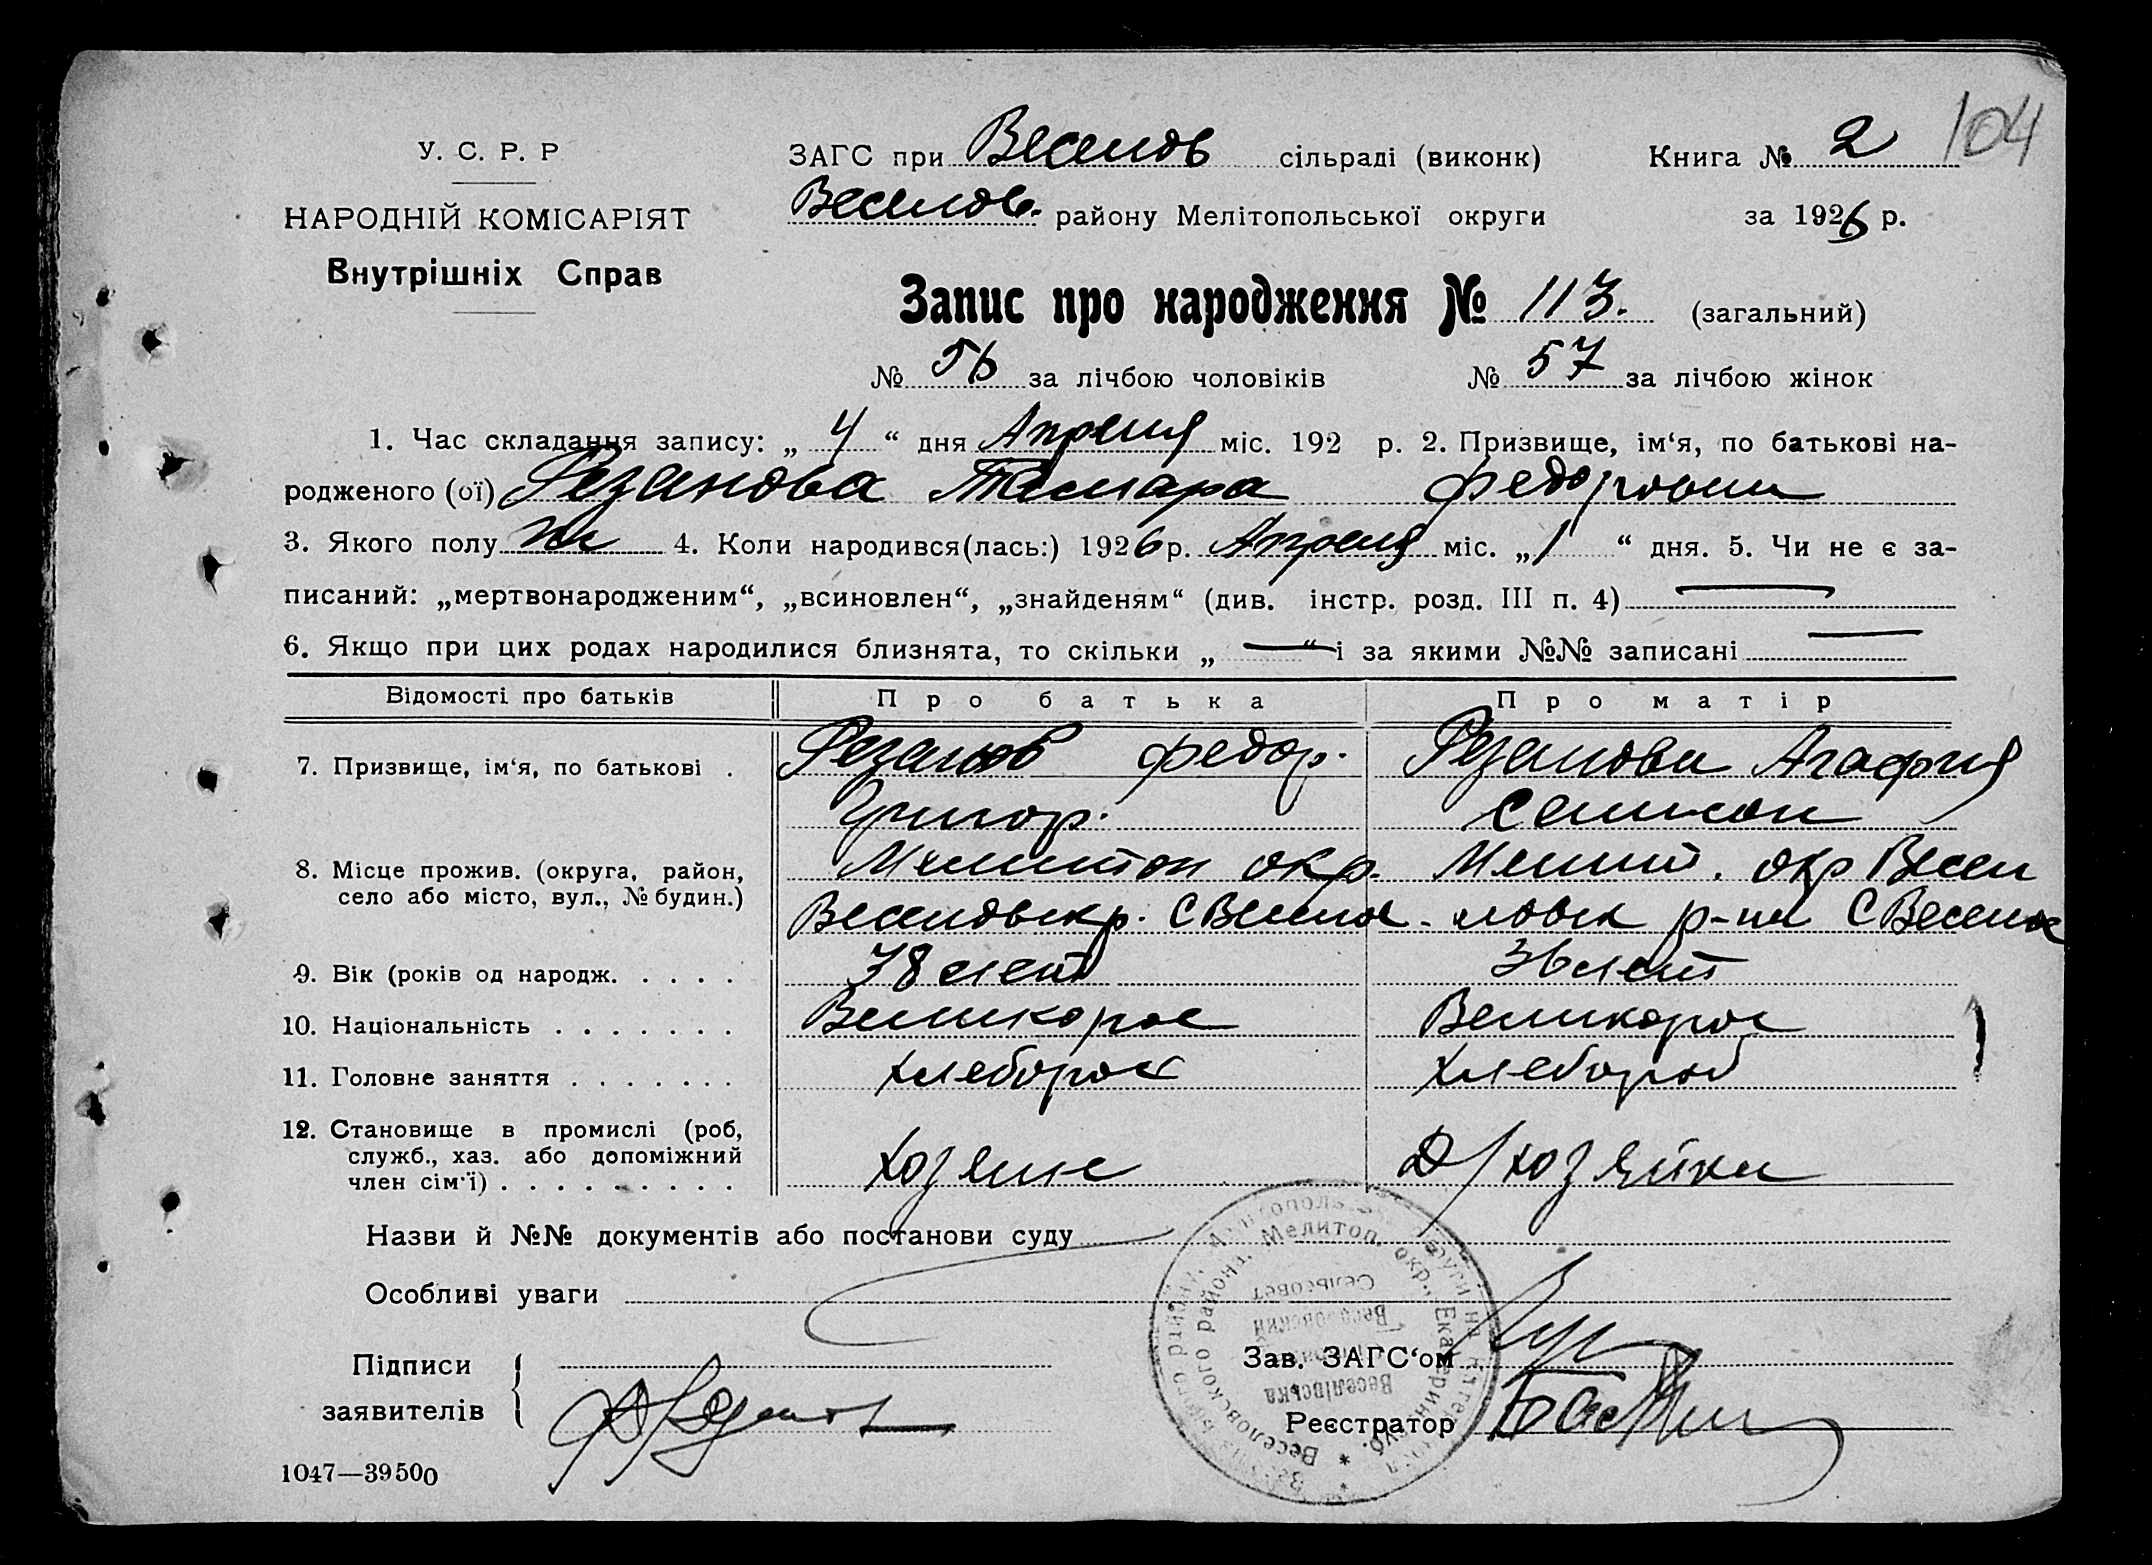 104
У. С. Р. Р
НАРОДНІЙ КОМІСАРІЯТ
Внутрішніх Справ
ЗАГС при Веселов сільраді (виконк) Книга № 2
Веселов. району Мелітопольської округи за 1926 р.
Запис про народження № 113. (загальний)
№ 56 за лічбою чоловіків № 57 за лічбою жінок
1. Час складання запису: „ 4 “ дня Апреля міс. 192 р. 2. Призвище, ім‘я, по батькові на-
родженого (ої) Резанова Тамара Федоровна
3. Якого полу ж 4. Коли народився(лась:) 1926 р. Апреля міс. „ 1 “ дня. 5. Чи не є за-
писаний: „мертвонародженим“, „всиновлен“, „знайденям“ (див. інстр. розд. III п. 4) —
6. Якщо при цих родах народилися близнята, то скільки „ — “ і за якими №№ записані —
Відомості про батьків Про батька Про матір
7. Призвище, ім‘я, по батькові . Резанов Федор. Резанова Агафия
Григор. Семион
8. Місце прожив. (округа, район, Мелитоп окр. Мелит. окр Весел
село або місто, вул., № будин.) Веселовск р. С Весело. ловск р-на С Веселое
9. Вік (років од народж. . . . . 38 лет 36 лет
10. Національність . . . . . . . Великорос Великорос
11. Головне заняття . . . . . . . Хлебороб Хлебороб
12. Становище в промислі (роб,
служб., хаз. або допоміжний Хозяин Д/хозяйка
член сім‘ї) . . . . . . . . .
Назви й №№ документів або постанови суду
Особливі уваги
Підписи Зав. ЗАГС‘ом
заявителів Реєстратор
Веселовского района, Мелитоп. окр., Екатерин. губ.
Веселовский
Сельсовет
Веселівська
1047—39500